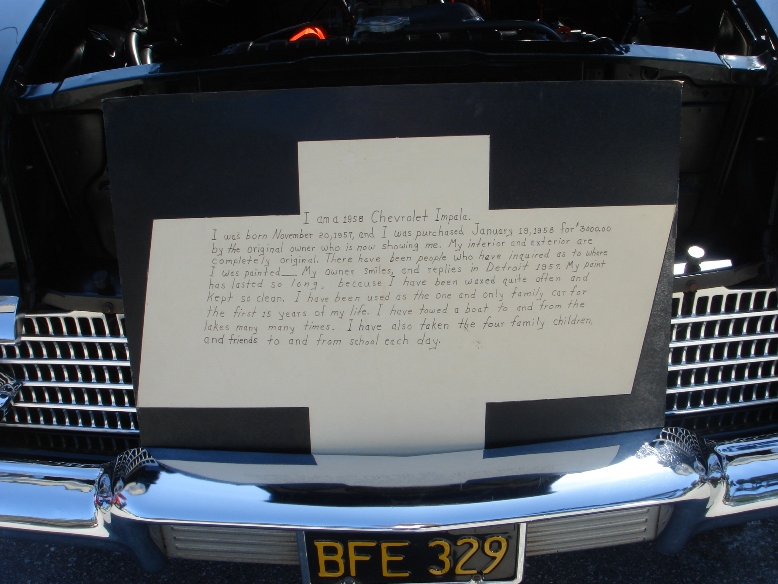 I am a 1958 Chevrolet Impala.
I was born November 20, 1957, and I was purchased January 18, 1958 for $3000.00
by the original owner who is now showing me. My interior and exterior are
completely original. There have been people who have inquired as to where
I was painted__ My owner smiles and replies in Detroit 1957. My paint
has lasted so long, because I have been waxed quite often and
kept so clean. I have been used as the one and only family car for
the first 15 years of my life. I have towed a boat to and from the
lakes many many times. I have also taken the four family children,
and friends to and from school each day.
BFE 329